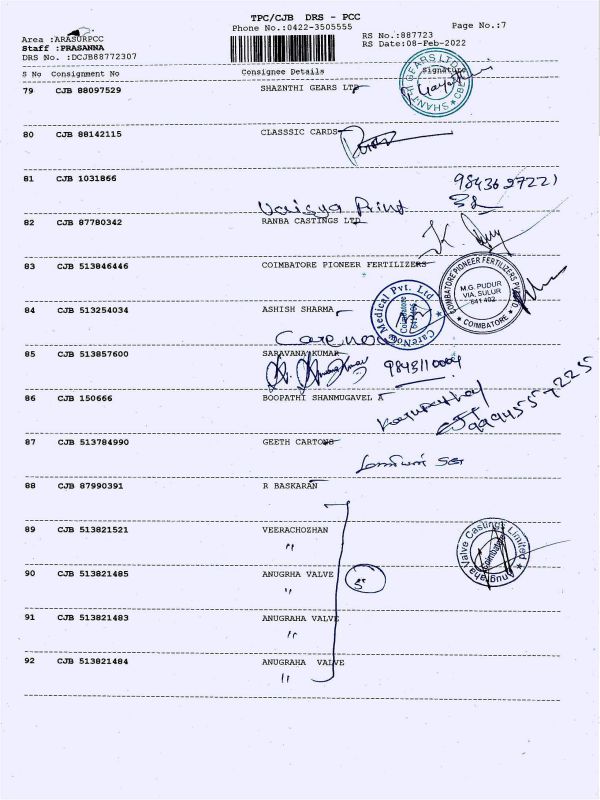 TPC/CJB DRS - PCC
Phone No.:0422-3505555
Page No.:7
Area :ARASURPCC
RS No.:887723
Staff :PRASANNA
RS Date:08-Feb-2022
DRS No. :DCJB88772307
S No Consignment No Consignee Details Signature
79 CJB 88097529 SHAZNTHI GEARS LTD
SHANTHI GEARS LTD CBE
80 CJB 88142115 CLASSSIC CARDS
81 CJB 1031866
Print
82 CJB 87780342 RANBA CASTINGS LTD
83 CJB 513846446 COIMBATORE PIONEER FERTILIZERS
COIMBATORE PIONEER FERTILIZERS
M.G. PUDUR
VIA, SULUR
641 402
COIMBATORE
84 CJB 513254034 ASHISH SHARMA
CareNow Medical Pvt. Ltd
Coimbatore
Care now
85 CJB 513857600 SARAVANA KUMAR
86 CJB 150666 BOOPATHI SHANMUGAVEL A
87 CJB 513784990 GEETH CARTONS
88 CJB 87990391 R BASKARAN
89 CJB 513821521 VEERACHOZHAN
"
Anugraha Valve Castings Limited
Coimbatore
90 CJB 513821485 ANUGRHA VALVE
5
"
91 CJB 513821483 ANUGRAHA VALVE
"
92 CJB 513821484 ANUGRAHA VALVE
"